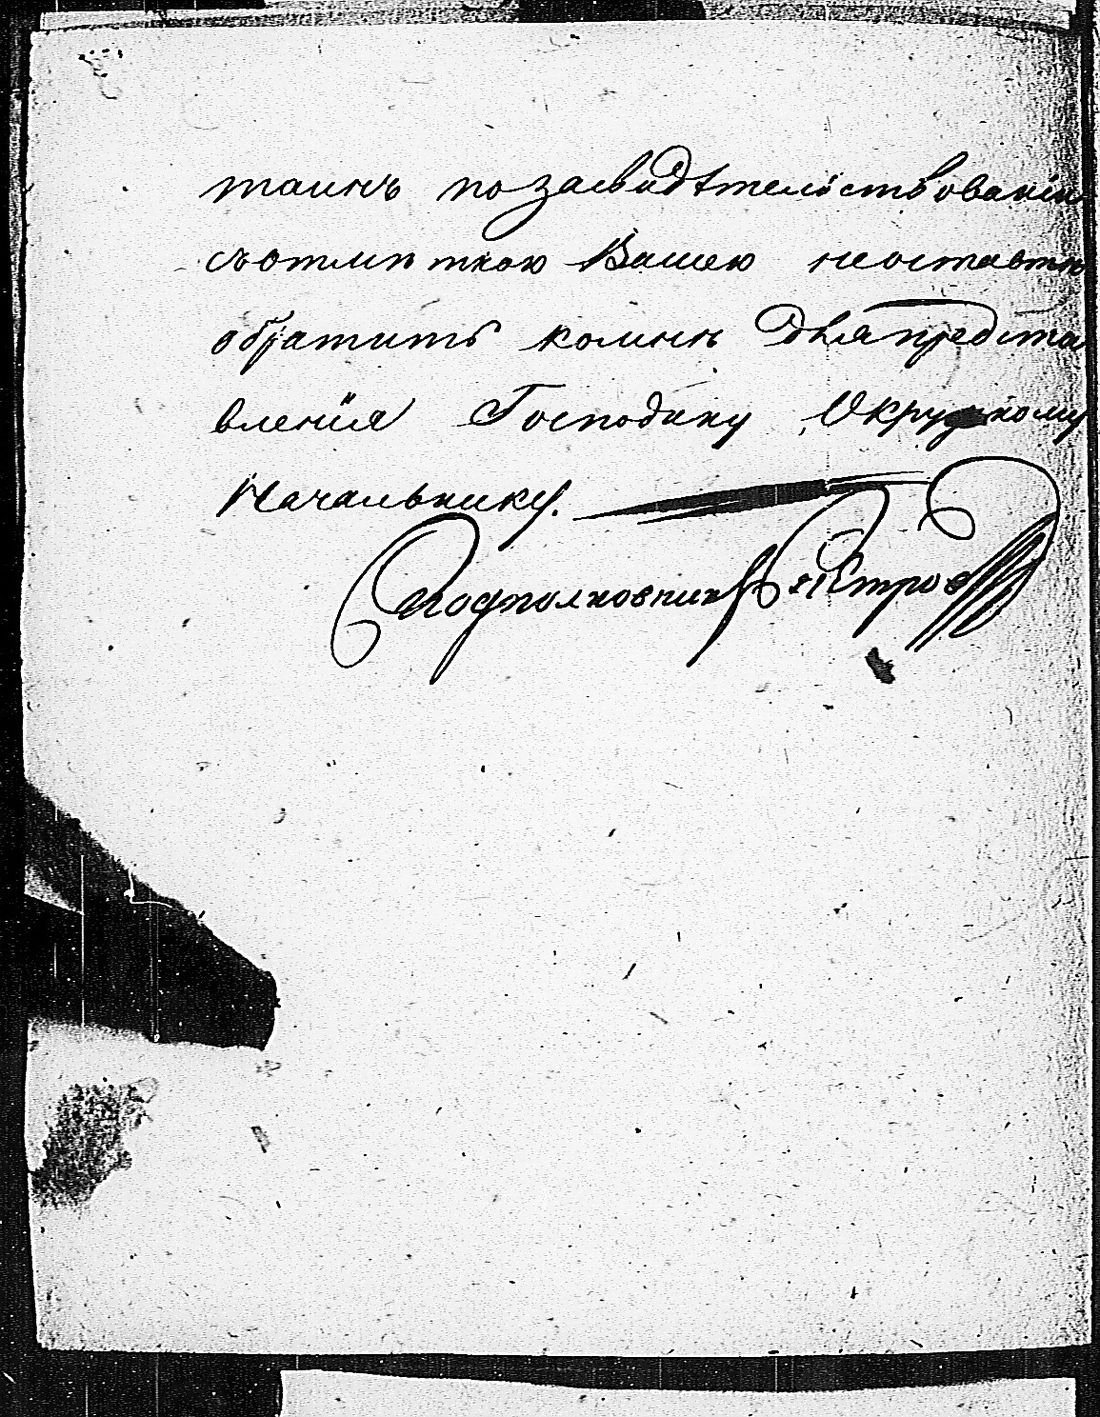 таинъ по засвидѣтельствованіи
съ отмѣткою Вашею неоставте
обратить ко мнѣ для предста
вленія Господину Окружному
Начальнику.
Подполковникъ Петровъ